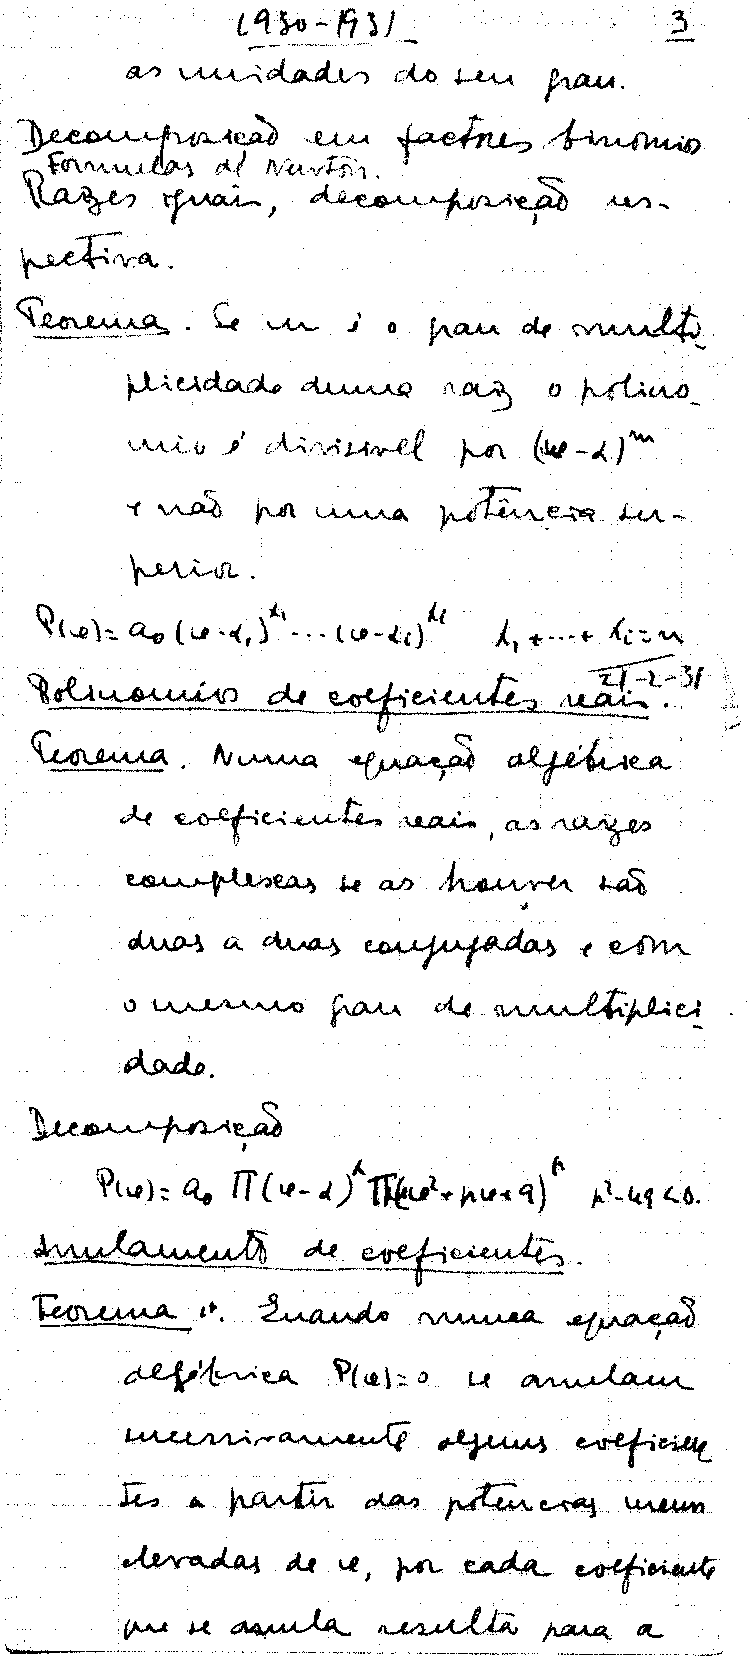 1930-1931 3
as unidades do seu grau.
Decomposição em factores binomios
Formulas de Newton.
Raizes iguais, decomposição res-
pectiva.
Teorema. Se m é o grau de multi-
plicidade duma raiz o polino-
mio é divisivel por (x-α)^m
e não por uma potência su-
perior.
P(x)= a₀ (x-α₁)^λ₁ ... (x-αᵢ)^λᵢ λ₁+...+λᵢ=n
21-2-31
Polinomios de coeficientes reais.
Teorema. Numa equação algébrica
de coeficientes reais, as raizes
complexas se as houver são
duas a duas conjugadas e com
o mesmo grau de multiplici-
dade.
Decomposição
P(x)= a₀ Π(x-α)^λ Π(x²+px+q)^μ p²-4q<0.
Anulamento de coeficientes.
Teorema 1º. Quando numa equação
algébrica P(x)=0 se anulam
sucessivamente alguns coeficien-
tes a partir das potencias menos
elevadas de x, por cada coeficiente
que se anula resulta para a